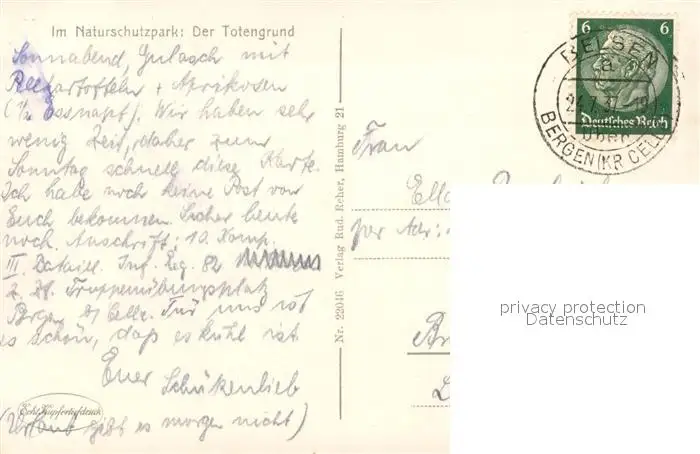 Im Naturschutzpark: Der Totengrund
Sonnabend, Gulasch mit
Pellkartoffeln + Aprikosen
(1/2 Essnapf). Wir haben sehr
wenig Zeit, daher zum
Sonntag schnell diese Karte.
Ich habe noch keine Post von
Euch bekommen. Sicher heute
noch. Anschrift: 10. Komp.
III. Bataill. Inf. Reg. 82
z. Zt. Truppenübungsplatz
Bergen b/ Celle. Für uns ist
es schön, daß es kühl ist
Euer Schükenlieb
(Urlaub gibt es morgen nicht)
Echt Kupfertiefdruck
Nr. 22046 Verlag Rud. Reher, Hamburg 21
Frau
Ella
per Adr.:
6 6
Deutsches Reich
BELSEN
a
24.7.37
über
BERGEN (KR CELLE)
privacy protection
Datenschutz